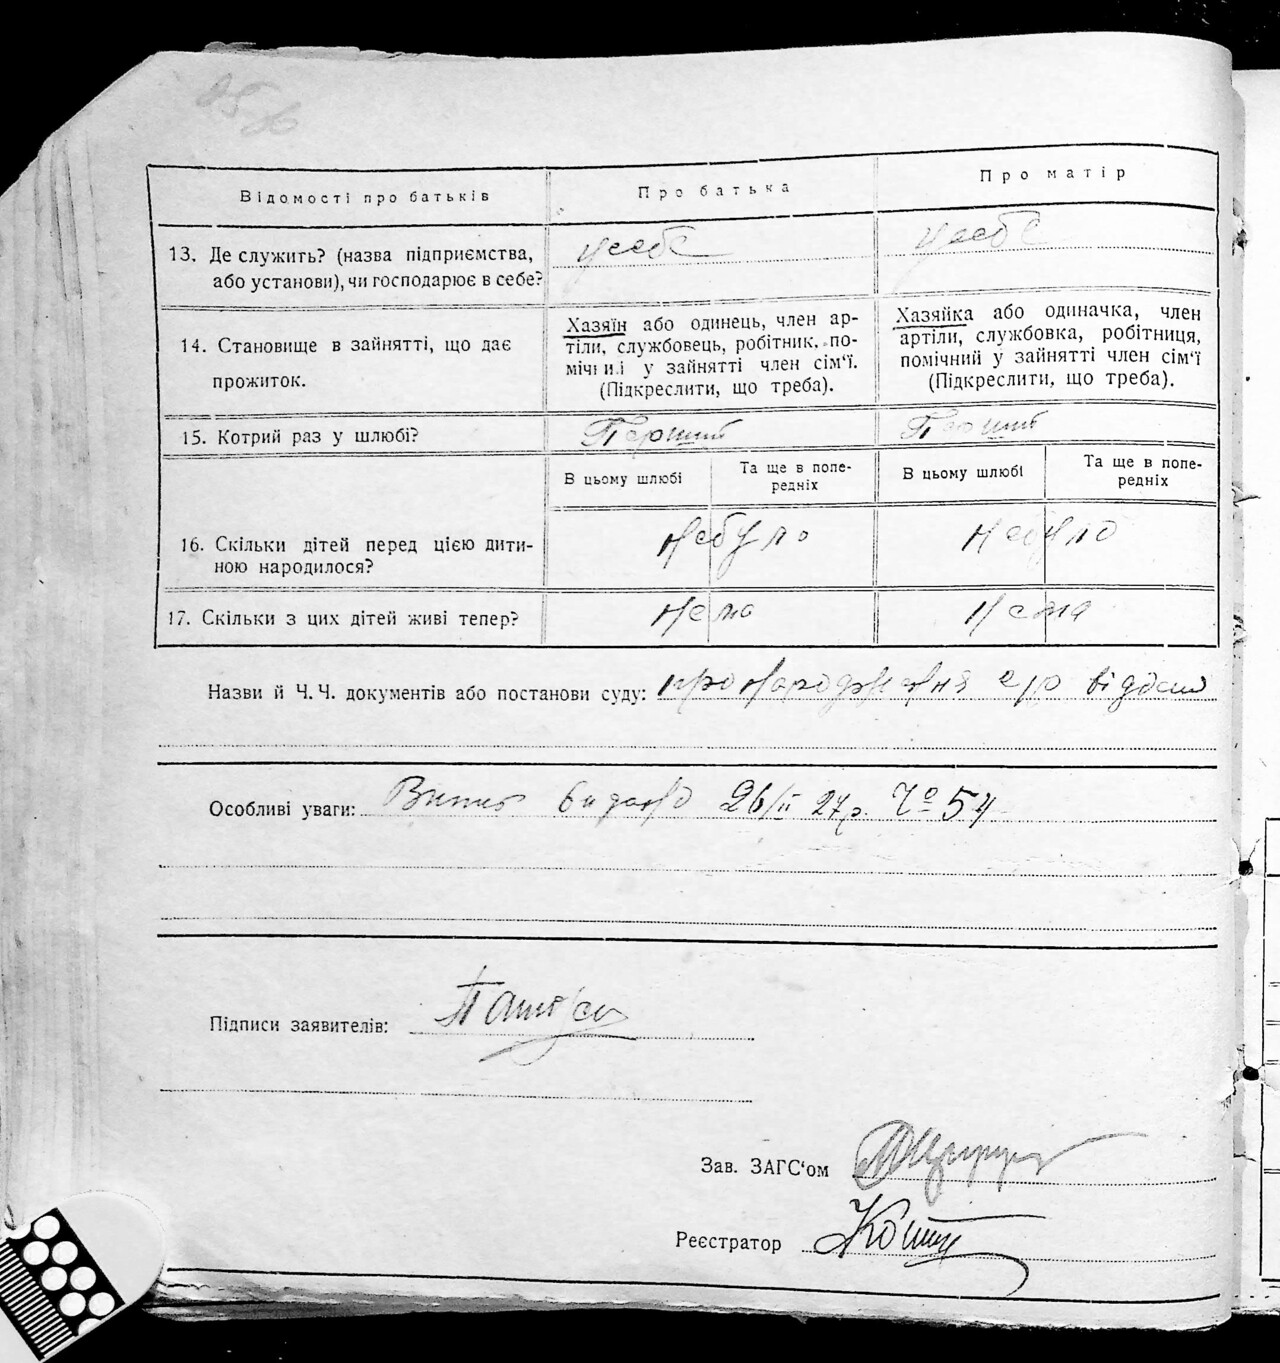 Відомості про батьків
Про батька
Про матір
13. Де служить? (назва підприємства,
або установи), чи господарює в себе?
усебе
усебе
14. Становище в зайнятті, що дає
прожиток.
Хазяїн або одинець, член ар-
тіли, службовець, робітник, по-
мічний у зайнятті член сім'ї.
(Підкреслити, що треба).
Хазяйка або одиначка, член
артіли, службовка, робітниця,
помічний у зайнятті член сім'ї
(Підкреслити, що треба).
15. Котрий раз у шлюбі?
Перший
Перший
В цьому шлюбі
Та ще в попе-
редніх
В цьому шлюбі
Та ще в попе-
редніх
16. Скільки дітей перед цією дити-
ною народилося?
небуло
небуло
17. Скільки з цих дітей живі тепер?
нема
нема
Назви й Ч. Ч. документів або постанови суду: про народження
Особливі уваги: Витяг видано 26/II 27р. Ч° 54
Підписи заявителів:
Зав. ЗАГС'ом
Реєстратор